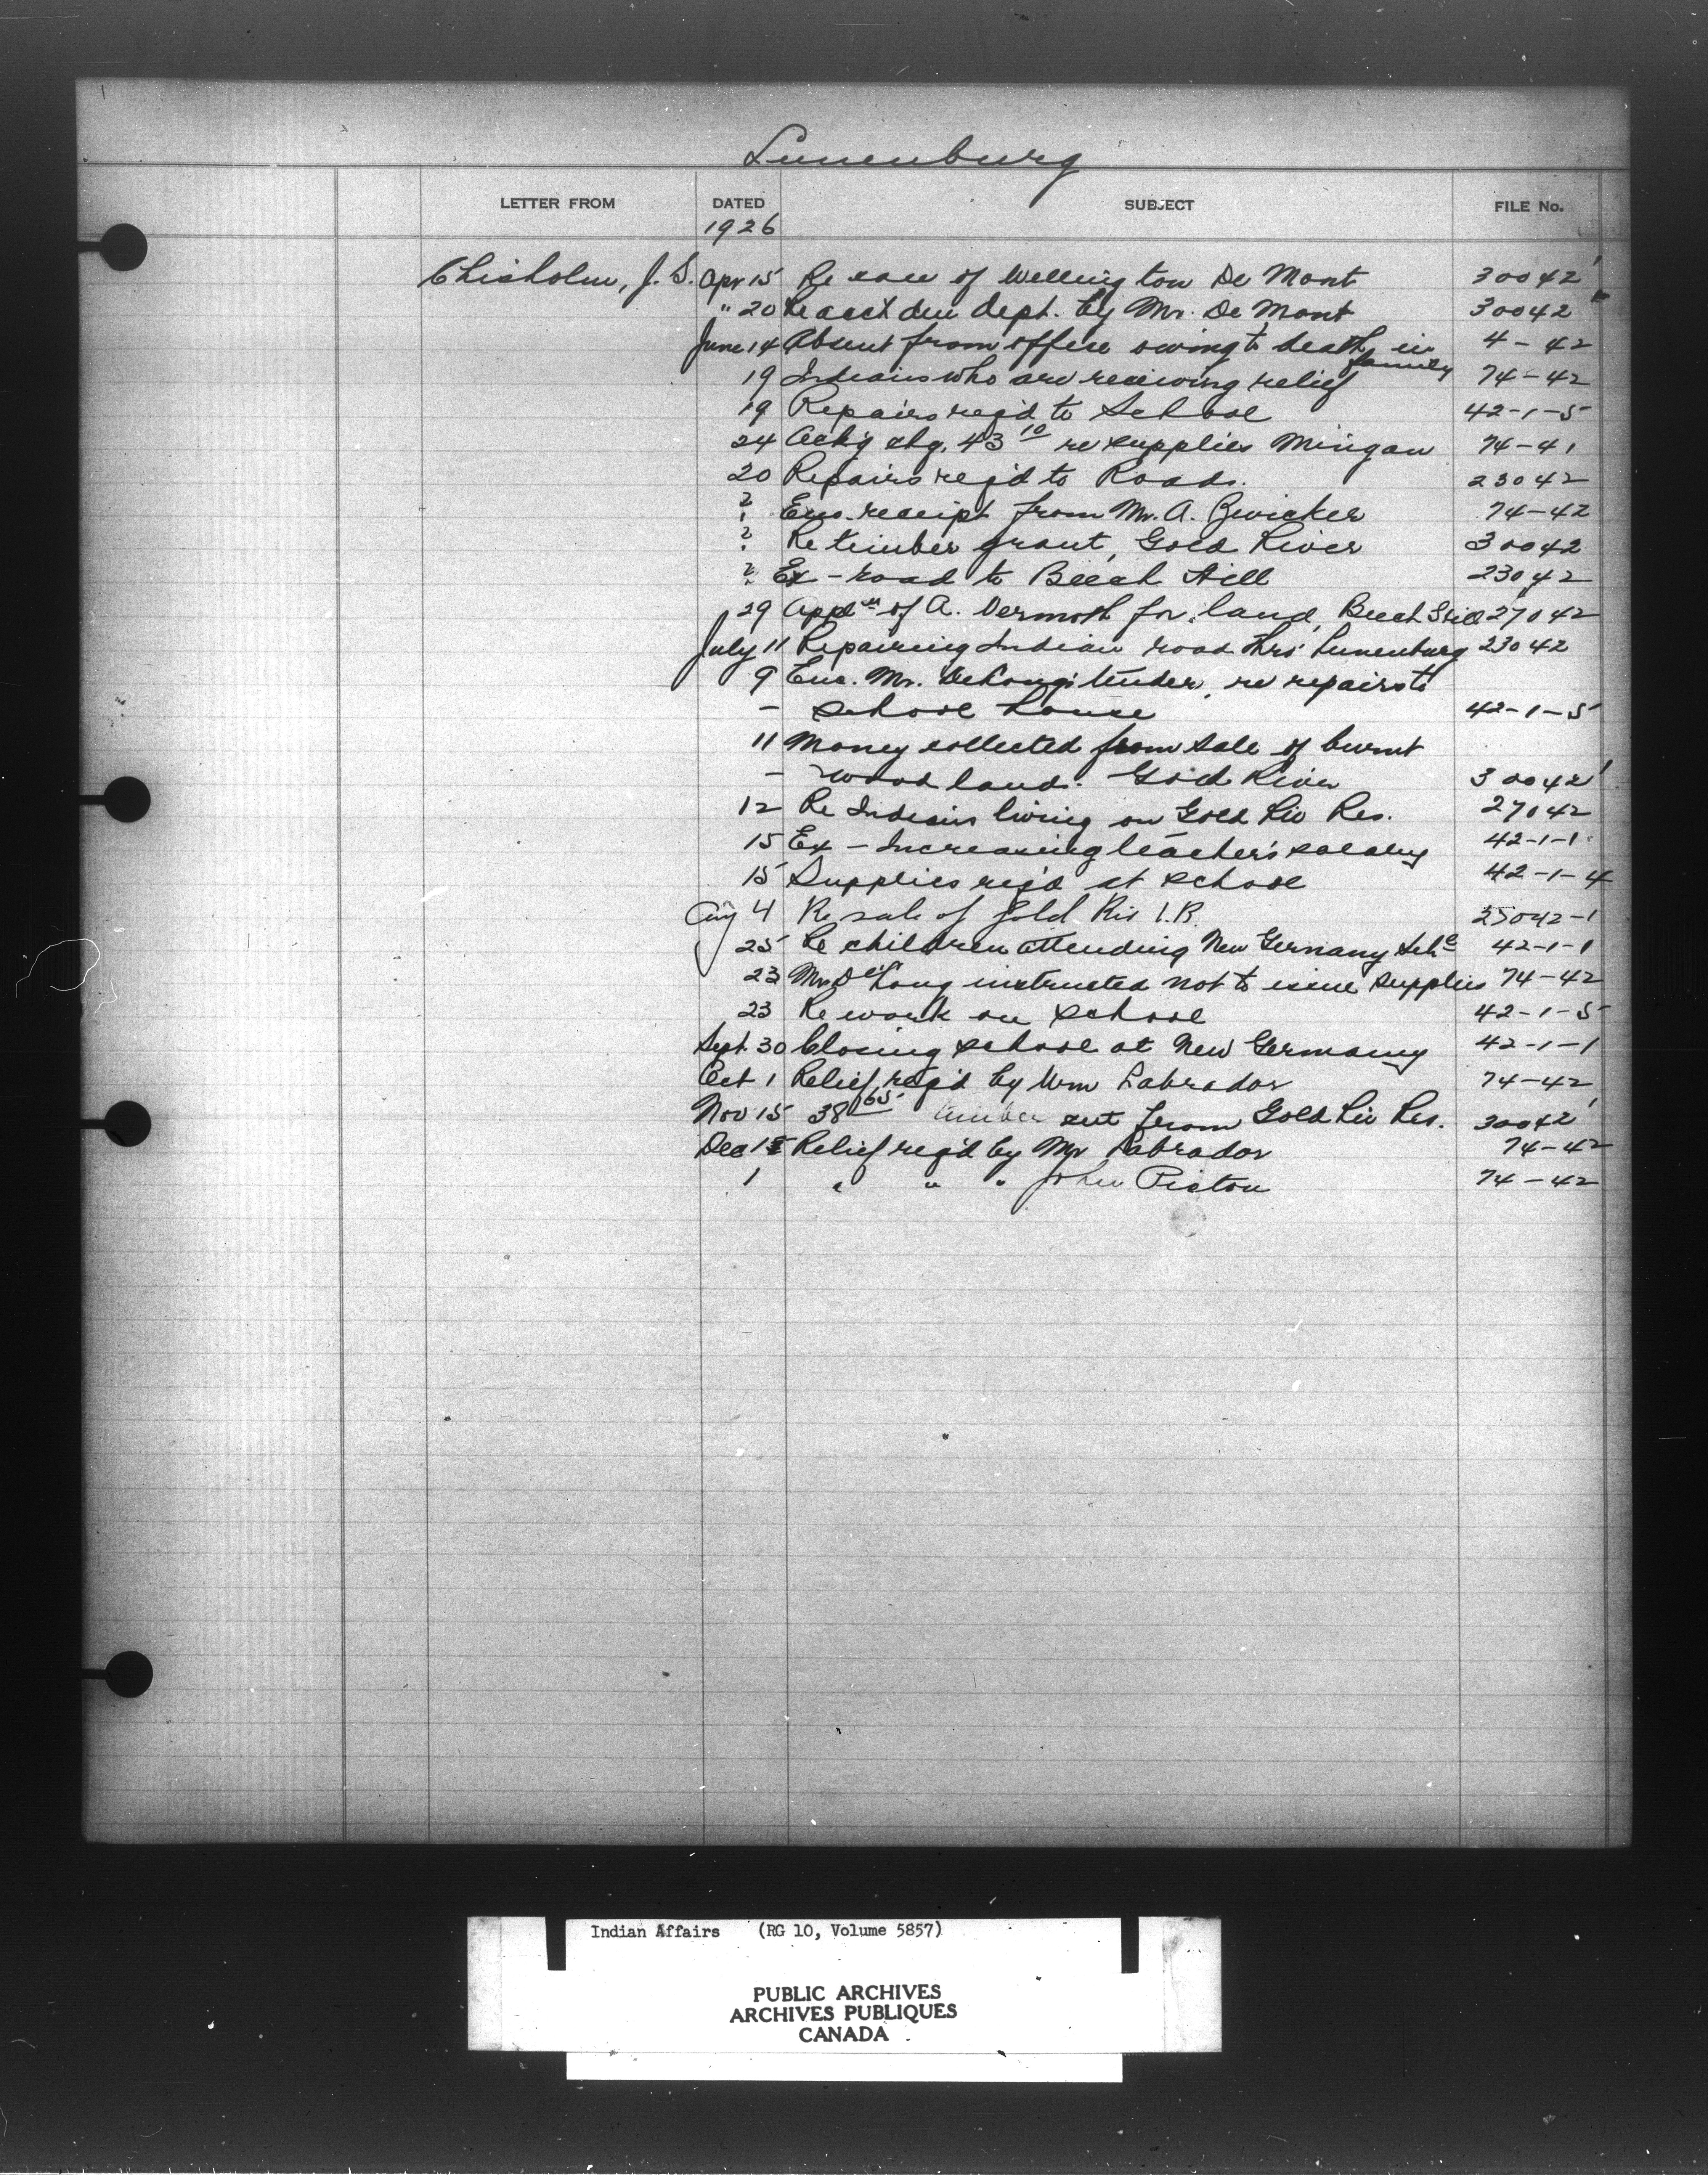 Lunenburg
LETTER FROM DATED SUBJECT FILE No.
1926
Chisholm, J. S. Apr 15 Re case of Wellington De Mont 30042
" 20 Re acct due dept. by Mr. De Mont 30042
June 14 Absent from office owing to death in family 4-42
19 Indians who are receiving relief 74-42
19 Repairs reqd to School 42-1-5
24 Ackg chq. 43 10 re supplies Mingan 74-41
20 Repairs reqd to Roads. 23042
? Enc. receipt from Mr. A. Zwicker 74-42
? Re timber grant, Gold River 30042
? Ex - road to Beech Hill 23042
29 Appln of A. Dermott for land, Beech Hill 27042
July 11 Repairing Indian road thro' Lunenburg 23042
9 Enc. Mr. DeLong's tender, re repairs to
- school house 42-1-5
11 Money collected from sale of burnt
- wood land. Gold River 30042
12 Re Indians living on Gold Riv Res. 27042
15 Ex - Increasing teacher's salary 42-1-1
15 Supplies reqd at school 42-1-4
Aug 4 Re sale of Gold Riv I.R. 25042-1
25 Re children attending New Germany Schl 42-1-1
23 Mr DeLong instructed not to issue supplies 74-42
23 Re work on school 42-1-5
Sept. 30 Closing school at New Germany 42-1-1
Oct 1 Relief reqd by Wm Labrador 74-42
Nov 15 38 65 timber cut from Gold Riv Res. 30042
Dec Relief reqd by Mr Labrador 74-42
1 " " " John Picton 74-42
Indian Affairs (RG 10, Volume 5857)
PUBLIC ARCHIVES
ARCHIVES PUBLIQUES
CANADA